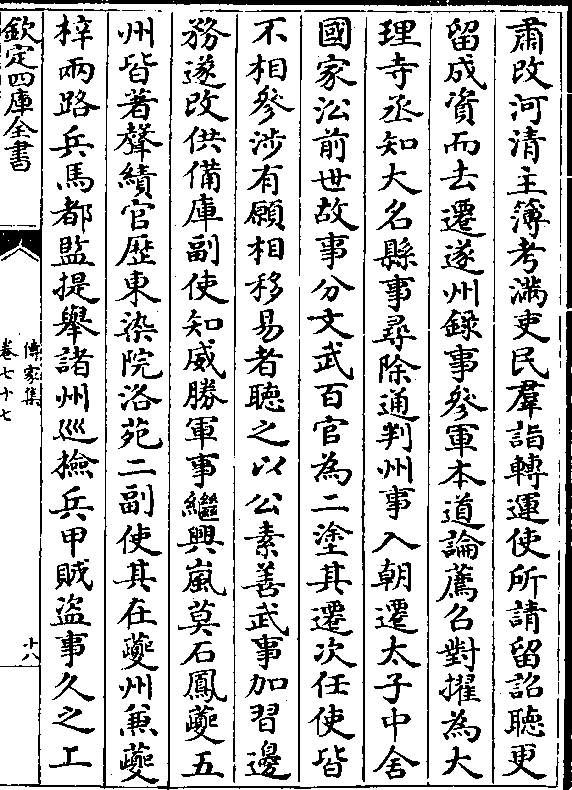 肅改河清主簿考滿吏民羣詣轉運使所請留詔聽更
留成資而去遷遂州録事參軍本道論薦召對擢為大
理寺丞知大名縣事尋除通判州事入朝遷太子中舍
國家㳂前世故事分文武百官為二塗其遷次任使皆
不相參涉有願相移易者聽之以公素善武事加習邊
務遂改供備庫副使知威勝軍事繼興嵐莫石鳳夔五
州皆著聲績官歴東染院洛苑二副使其在夔州兼夔
梓兩路兵馬都監提舉諸州廵撿兵甲賊盗事久之工
欽定四庫全書
傳家集
卷七十七
十八